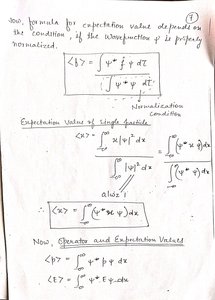 ①
Now, formula for expectation value depends on
the condition, if the wavefunction ψ is properly
normalized.
<f> = ∫ψ* f̂ ψ dτ / ∫ψ* ψ dτ
Normalization
Condition
Expectation Value of Single particle
<x> = ∫_{-∞}^{∞} x|ψ|² dx / ∫_{-∞}^{∞} |ψ|² dx = ∫_{-∞}^{∞} (ψ* x ψ) dx / ∫_{-∞}^{∞} (ψ* ψ) dx
alwz 1
∴ <x> = ∫_{-∞}^{∞} (ψ* x ψ) dx
Now, Operator and Expectation Values
<p> = ∫_{-∞}^{∞} ψ* p ψ dx
<E> = ∫_{-∞}^{∞} ψ* E ψ dx